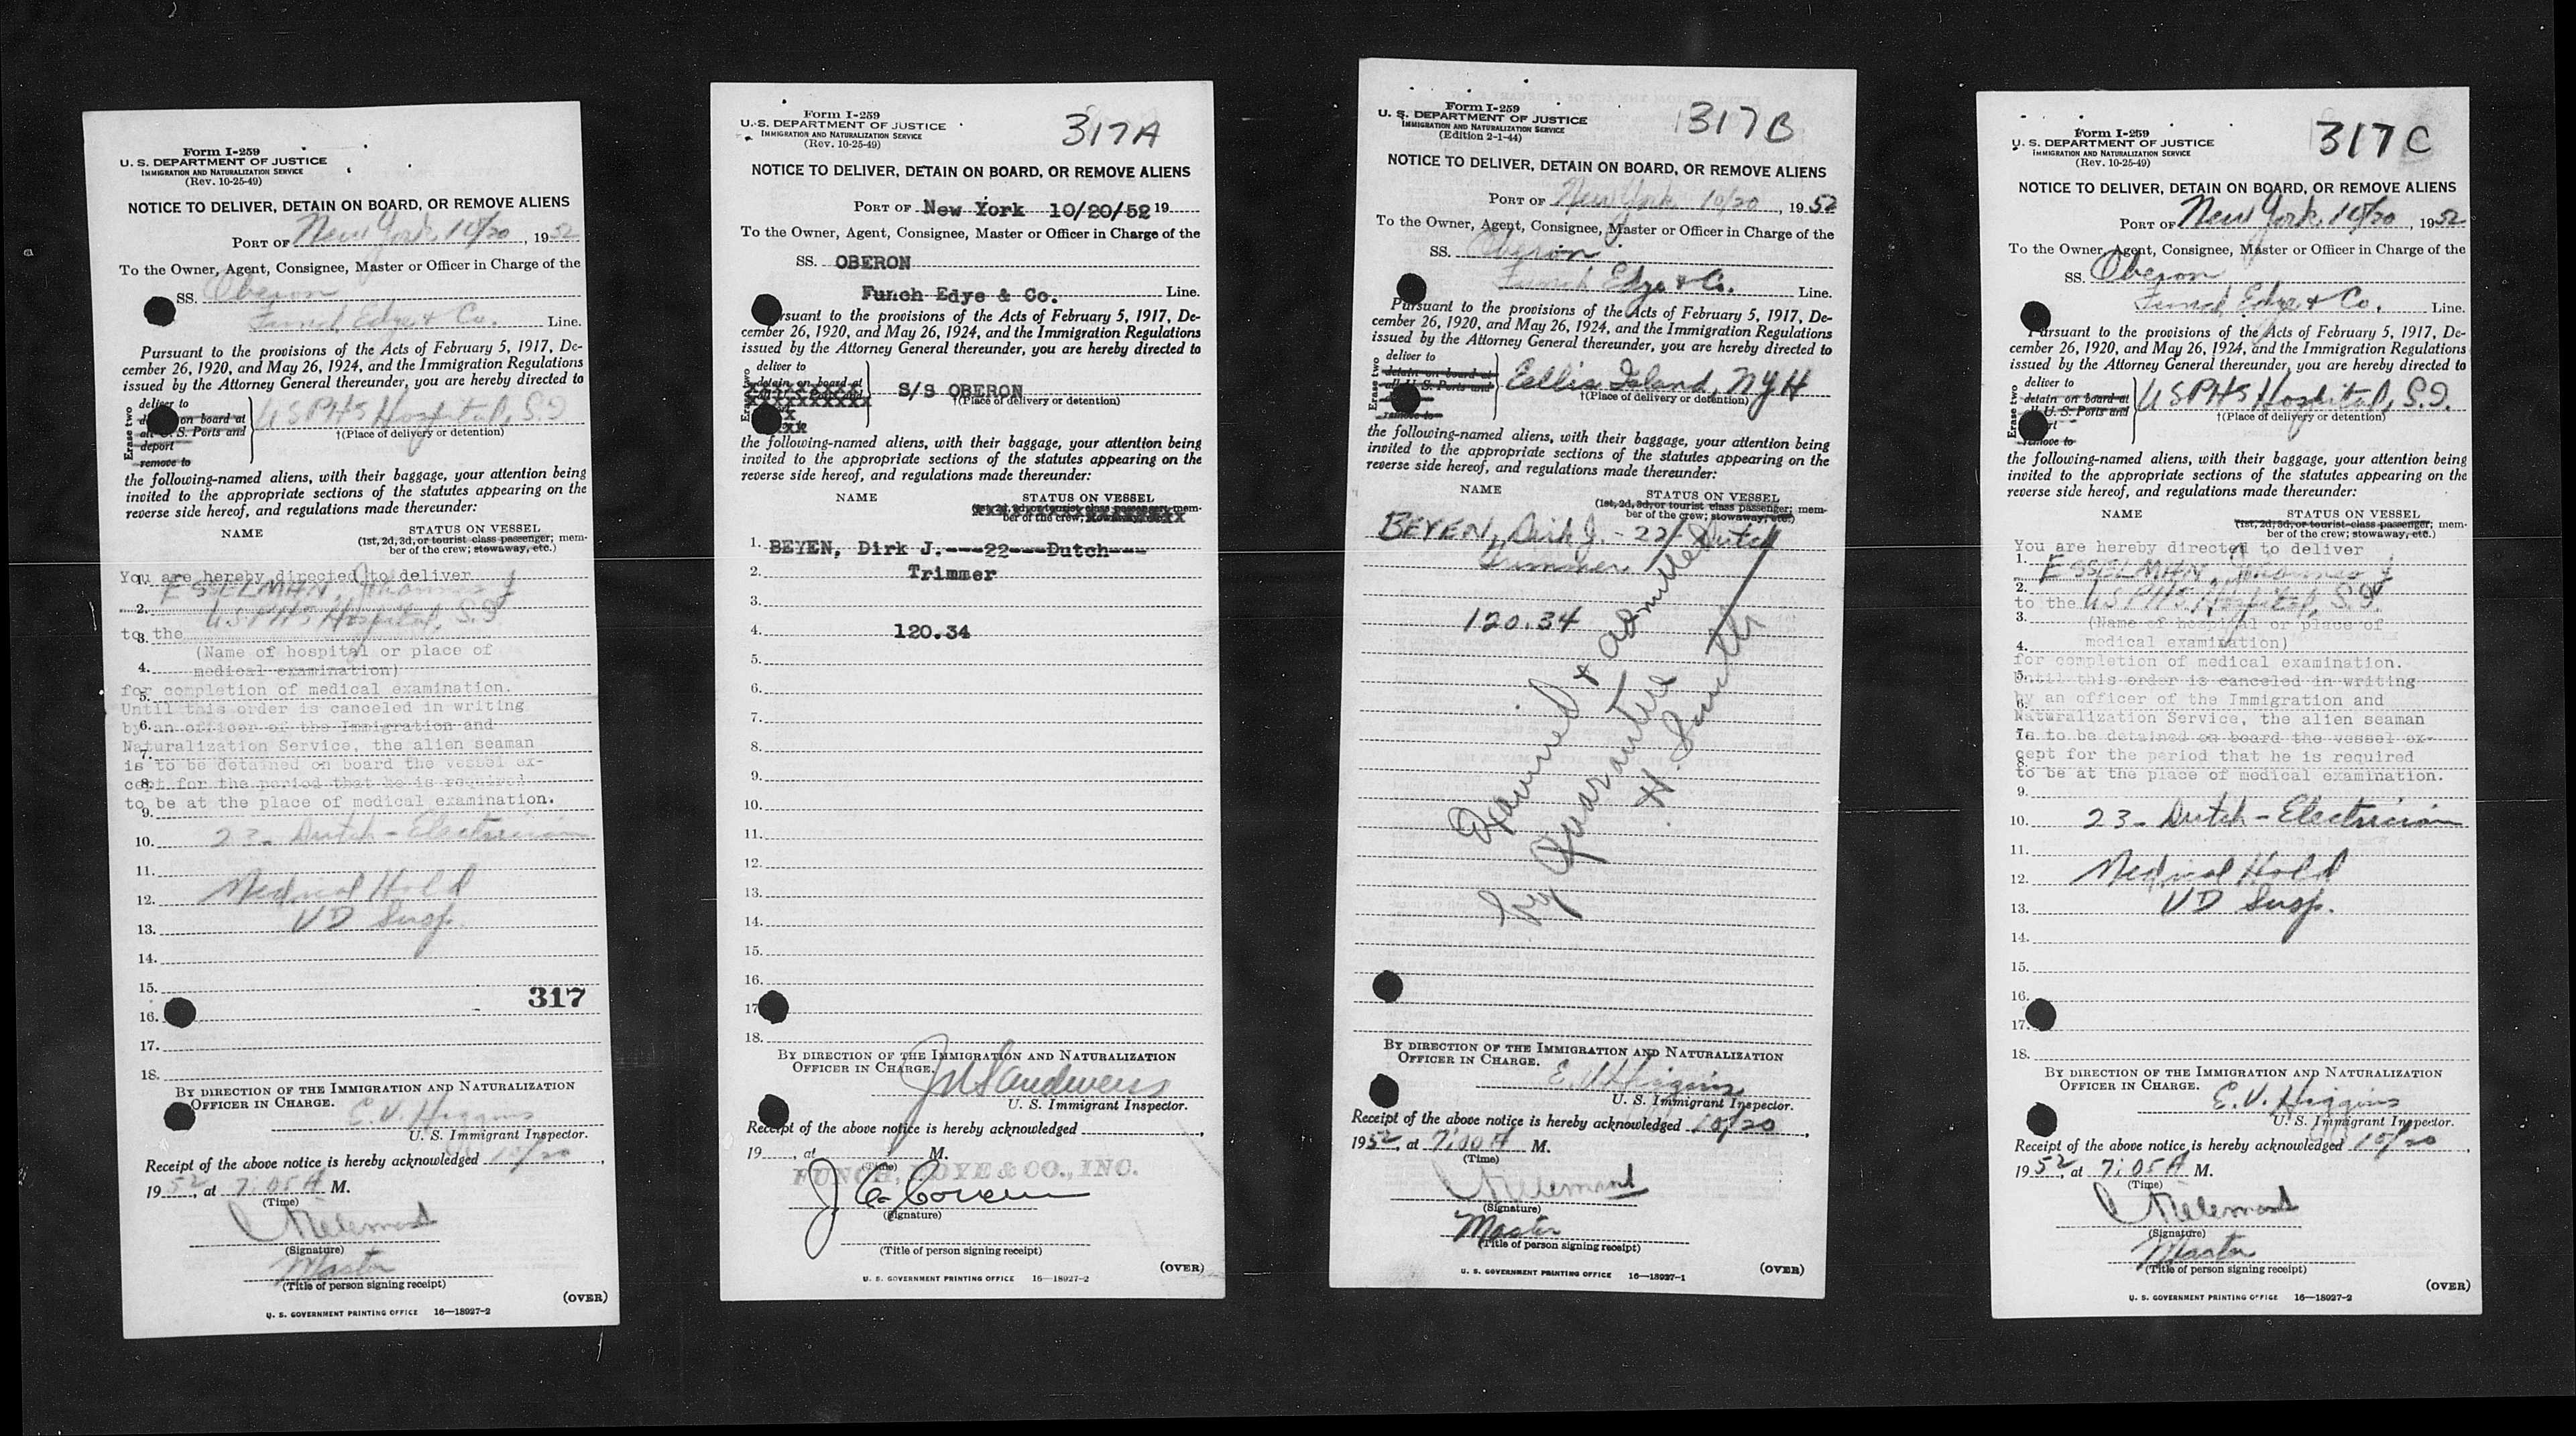 Form I-259
U. S. DEPARTMENT OF JUSTICE
IMMIGRATION AND NATURALIZATION SERVICE
(Rev. 10-25-49)
NOTICE TO DELIVER, DETAIN ON BOARD, OR REMOVE ALIENS
PORT OF New York 10/20, 1952
To the Owner, Agent, Consignee, Master or Officer in Charge of the
SS. Oberon
Funch, Edye & Co. Line.
Pursuant to the provisions of the Acts of February 5, 1917, De-
cember 26, 1920, and May 26, 1924, and the Immigration Regulations
issued by the Attorney General thereunder, you are hereby directed to
Erase two
deliver to
on board at
all U. S. Ports and
deport
remove to
USPHS Hospital, S.I.
†(Place of delivery or detention)
the following-named aliens, with their baggage, your attention being
invited to the appropriate sections of the statutes appearing on the
reverse side hereof, and regulations made thereunder:
NAME STATUS ON VESSEL
(1st, 2d, 3d, or tourist class passenger; mem-
ber of the crew; stowaway, etc.)
You are hereby directed to deliver
1. ESSELMAN, Johannes J
2. USPHS Hospital, S.I
to the
3.
(Name of hospital or place of
4. medical examination)
for completion of medical examination.
5.
Until this order is canceled in writing
6. by an officer of the Immigration and
Naturalization Service, the alien seaman
7.
is to be detained on board the vessel ex-
8. cept for the period that he is required
to be at the place of medical examination.
9.
10. 23- Dutch - Electrician
11.
12. Medical Hold
13. VD Susp.
14.
15.
317
16.
17.
18.
BY DIRECTION OF THE IMMIGRATION AND NATURALIZATION
OFFICER IN CHARGE.
E. V. Higgins
U. S. Immigrant Inspector.
Receipt of the above notice is hereby acknowledged 10/20,
1952, at 7:05 A M.
(Time)
(Signature)
Master
(Title of person signing receipt)
(OVER)
U. S. GOVERNMENT PRINTING OFFICE 16—18927-2
Form I-259
U. S. DEPARTMENT OF JUSTICE
IMMIGRATION AND NATURALIZATION SERVICE
(Rev. 10-25-49)
317A
NOTICE TO DELIVER, DETAIN ON BOARD, OR REMOVE ALIENS
PORT OF New York 10/20/52 19
To the Owner, Agent, Consignee, Master or Officer in Charge of the
SS. OBERON
Funch Edye & Co. Line.
rsuant to the provisions of the Acts of February 5, 1917, De-
cember 26, 1920, and May 26, 1924, and the Immigration Regulations
issued by the Attorney General thereunder, you are hereby directed to
Erase two
deliver to
detain on board at
S/S OBERON
†(Place of delivery or detention)
the following-named aliens, with their baggage, your attention being
invited to the appropriate sections of the statutes appearing on the
reverse side hereof, and regulations made thereunder:
NAME STATUS ON VESSEL
(1st, 2d, 3d, or tourist class passenger; mem-
ber of the crew; stowaway, etc.)
1. BEYEN, Dirk J.---22---Dutch---
2. Trimmer
3.
4. 120.34
5.
6.
7.
8.
9.
10.
11.
12.
13.
14.
15.
16.
17
18.
BY DIRECTION OF THE IMMIGRATION AND NATURALIZATION
OFFICER IN CHARGE.
U. S. Immigrant Inspector.
Receipt of the above notice is hereby acknowledged
19 , at M.
(Time)
FUNCH, EDYE & CO., INC.
(Signature)
(Title of person signing receipt)
(OVER)
U. S. GOVERNMENT PRINTING OFFICE 16—18927-2
Form I-259
U. S. DEPARTMENT OF JUSTICE
IMMIGRATION AND NATURALIZATION SERVICE
(Edition 2-1-44)
317B
NOTICE TO DELIVER, DETAIN ON BOARD, OR REMOVE ALIENS
PORT OF New York 10/20, 1952
To the Owner, Agent, Consignee, Master or Officer in Charge of the
SS. Oberon
Funch Edye & Co. Line.
Pursuant to the provisions of the Acts of February 5, 1917, De-
cember 26, 1920, and May 26, 1924, and the Immigration Regulations
issued by the Attorney General thereunder, you are hereby directed to
Erase two
deliver to
detain on board at
all U. S. Ports and
remove to
Ellis Island, NYH
†(Place of delivery or detention)
the following-named aliens, with their baggage, your attention being
invited to the appropriate sections of the statutes appearing on the
reverse side hereof, and regulations made thereunder:
NAME STATUS ON VESSEL
(1st, 2d, 3d, or tourist class passenger; mem-
ber of the crew; stowaway, etc.)
BEYEN, Dirk J. - 22 Dutch
Trimmer.
120.34
Examined & admitted
by Quarantine
BY DIRECTION OF THE IMMIGRATION AND NATURALIZATION
OFFICER IN CHARGE.
E. V. Higgins
U. S. Immigrant Inspector.
Receipt of the above notice is hereby acknowledged 10/20,
1952, at 7:00 A M.
(Time)
(Signature)
Master
(Title of person signing receipt)
(OVER)
U. S. GOVERNMENT PRINTING OFFICE 16—18927-1
Form I-259
U. S. DEPARTMENT OF JUSTICE
IMMIGRATION AND NATURALIZATION SERVICE
(Rev. 10-25-49)
317C
NOTICE TO DELIVER, DETAIN ON BOARD, OR REMOVE ALIENS
PORT OF New York, 10/20, 1952
To the Owner, Agent, Consignee, Master or Officer in Charge of the
SS. Oberon
Funch, Edye & Co. Line.
Pursuant to the provisions of the Acts of February 5, 1917, De-
cember 26, 1920, and May 26, 1924, and the Immigration Regulations
issued by the Attorney General thereunder, you are hereby directed to
Erase two
deliver to
detain on board at
all U. S. Ports and
remove to
USPHS Hospital, S.I.
†(Place of delivery or detention)
the following-named aliens, with their baggage, your attention being
invited to the appropriate sections of the statutes appearing on the
reverse side hereof, and regulations made thereunder:
NAME STATUS ON VESSEL
(1st, 2d, 3d, or tourist class passenger; mem-
ber of the crew; stowaway, etc.)
You are hereby directed to deliver
1. ESSELMAN, Johannes J
2.
to the USPHS Hospital, S.I.
3. (Name of hospital or place of
4. medical examination)
for completion of medical examination.
5.
Until this order is canceled in writing
by an officer of the Immigration and
6.
Naturalization Service, the alien seaman
7.
is to be detained on board the vessel ex-
8.
cept for the period that he is required
to be at the place of medical examination.
9.
10. 23- Dutch - Electrician
11.
12. Medical Hold
13. VD Susp.
14.
15.
16.
17.
18.
BY DIRECTION OF THE IMMIGRATION AND NATURALIZATION
OFFICER IN CHARGE.
E. V. Higgins
U. S. Immigrant Inspector.
Receipt of the above notice is hereby acknowledged 10/20,
1952, at 7:05 A M.
(Time)
(Signature)
Master
(Title of person signing receipt)
(OVER)
U. S. GOVERNMENT PRINTING OFFICE 16—18927-2